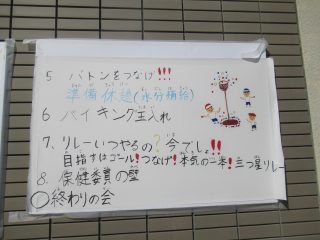 5 バトンをつなげ!!!
準備休憩(水分補給)
6 バイキング玉入れ
7. リレーいつやるの?今でしょ!!
目指すはゴール!つなげ!本気の一本!三つ星リレー
8. 保健委員の壁
○終わりの会